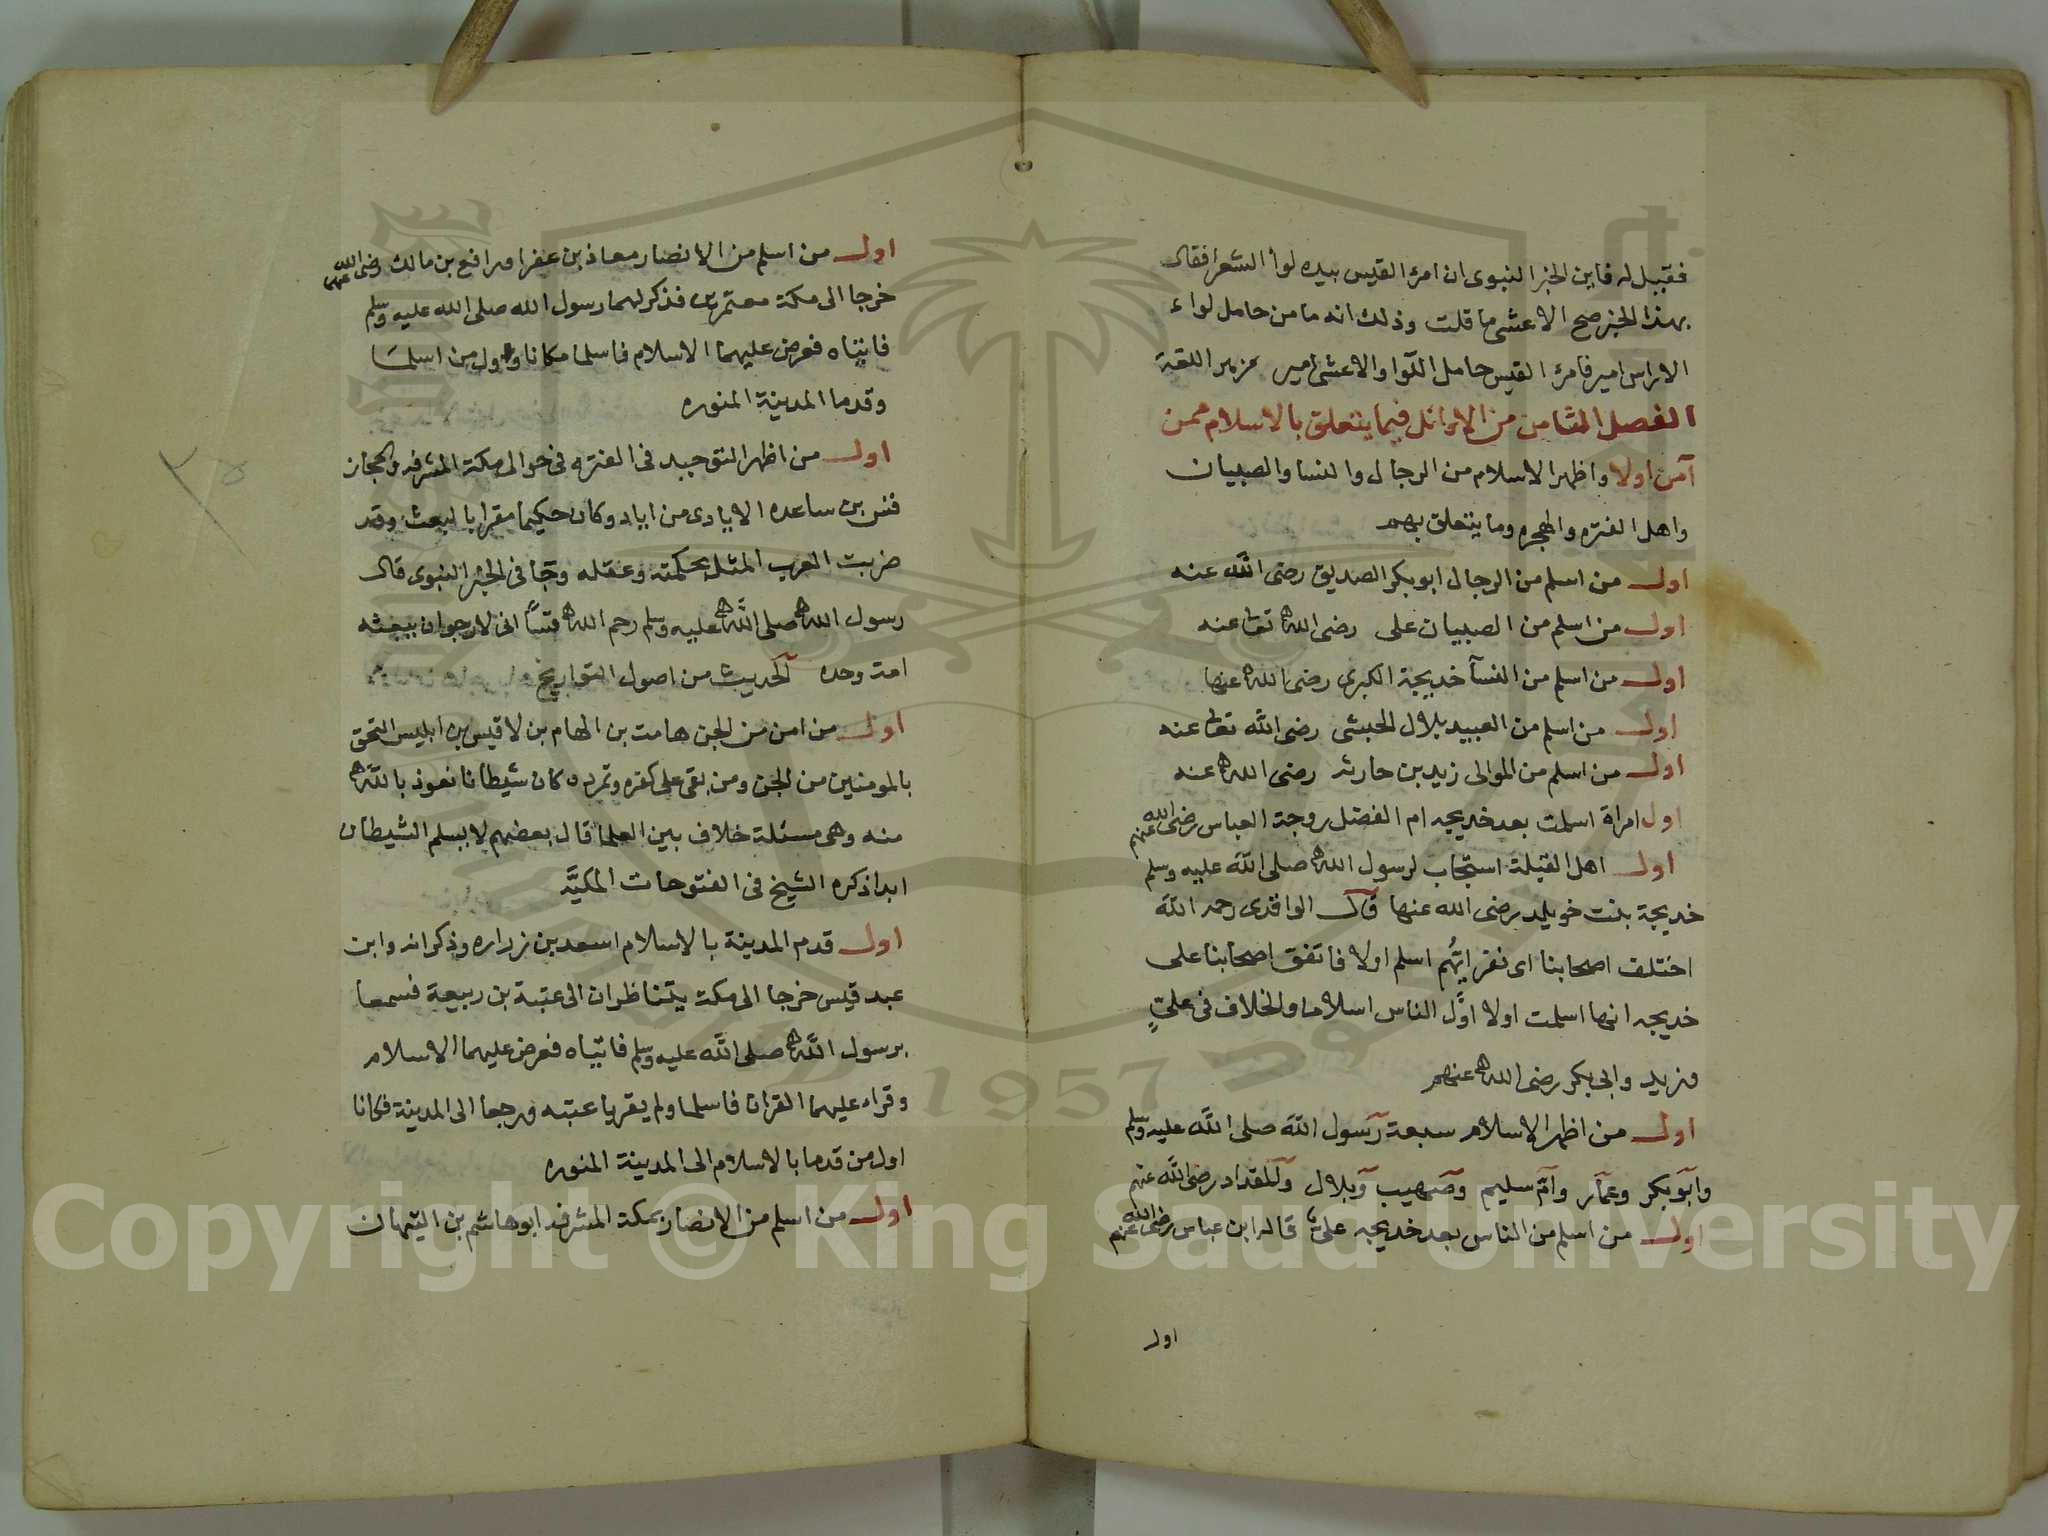 فقيل له فاين الخبر النبوى ان امرء القيس بيده لوا الشعرا فقال
بهذا الخبر صح الاعشى ما قلت وذلك انه ما من حامل لواء
الا راس امير فامرء القيس حامل اللوا والاعشى امير مزهر اللغة
الفصل الثامن من الاوائل فيما يتعلق بالاسلام ممن
آمن اولا واظهر الاسلام من الرجال والنسا والصبيان
واهل الفتره والهجره وما يتعلق بهم
اول من اسلم من الرجال ابو بكر الصديق رضى الله عنه
اول من اسلم من الصبيان على رضى الله تعا عنه
اول من اسلم من النسآ خديجة الكبرى رضى الله عنها
اول من اسلم من العبيد بلال الحبشى رضى الله تعا عنه
اول من اسلم من الموالى زيد بن حارثه رضى الله عنه
اول امراة اسلمت بعد خديجه ام الفضل زوجة العباس رضى الله عنهم
اول اهل القبلة استجاب لرسول الله صلى الله عليه وسلم
خديجة بنت خويلد رضى الله عنها قال الواقدى رحمه الله
اختلف اصحابنا اى نفر ايُّهم اسلم اولا فاتفق اصحابنا على
خديجه انها اسلمت اولا اوَّل الناس اسلاما والخلاف فى علىٍّ
وزيد وابى بكر رضى الله عنهم
اول من اظهر الاسلام سبعة رسول الله صلى الله عليه وسلم
وابو بكر وعمار وام سليم وصهيب وبلال والمقداد رضى الله عنهم
اول من اسلم من الناس بعد خديجه على قاله ابن عباس رضى الله عنهم
اول
اول من اسلم من الانصار معاذ بن عفرا ورافع بن مالك رضى الله عنهم
خرجا الى مكة معتمرين فذكر لهما رسول الله صلى الله عليه وسلم
فاتياه فعرض عليهما الاسلام فاسلما مكانا واول من اسلما
وقدما المدينة المنوره
اول من اظهر التوحيد فى الفتره فى حوالى مكة المشرفه والحجاز
قس بن ساعده الايادى من اياد وكان حكيما مقرا بالبعث وقد
ضربت العرب المثل بحكمته وعقله وجآ فى الخبر النبوى قال
رسول الله صلى الله عليه وسلم رحم الله قسّاً انى لارجو ان يبعثه
امة وحده الحديث من اصول التواريخ
اول من امن من الجن هامت بن الهام بن لاقيس بن ابليس التحق
بالمومنين من الجن ومن بقى على كفره وتمرده كان شيطانا نعوذ بالله
منه وهى مسئلة خلاف بين العلما قال بعضهم لا يسلم الشيطان
ابدا ذكره الشيخ فى الفتوحات المكيَّه
اول قدم المدينة بالاسلام اسعد بن زراره وذكوانه وابن
عبد قيس خرجا الى مكة يتناظران الى عتبة بن ربيعة فسمعا
برسول الله صلى الله عليه وسلم فاتياه فعرض عليهما الاسلام
وقراء عليهما القران فاسلما ولم يقربا عتبه ورجعا الى المدينة فكانا
اول من قدما بالاسلام الى المدينة المنوره
اول من اسلم من الانصار بمكة المشرفه ابو هاشم بن التيهان
1957
Copyright © King Saud University